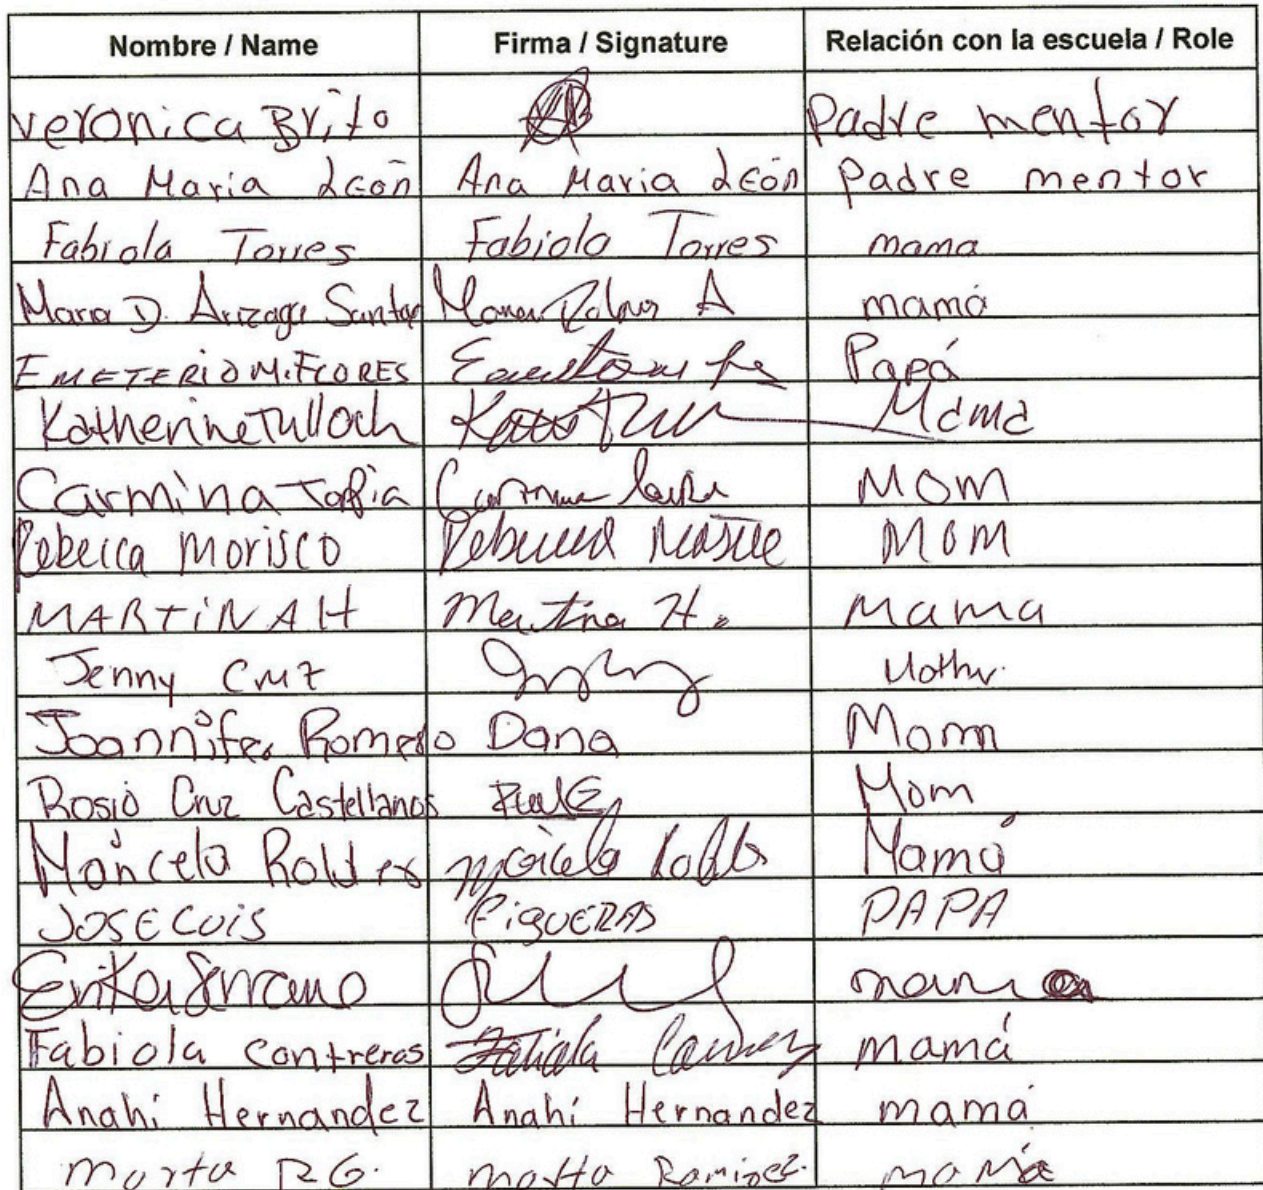 Nombre / Name Firma / Signature Relación con la escuela / Role
Veronica Brito Padre mentor
Ana Maria León Ana Maria León Padre mentor
Fabiola Torres Fabiola Torres mama
Maria D. Arizaga A mamá
EMETERIO M. FLORES Papá
Katherine Tulloch Mama
Carmina Tapia Mom
Rebecca Morisco Rebecca MOM
MARTINA H Martina H. Mama
Jenny Cruz Mother
Joannifer Romero Dana Mom
Rosio Cruz Castellanos Mom
Maricela Maricela Mamá
JOSE LUIS FIGUERAS PAPA
Erika Serrano mama
Fabiola contreras Fabiola mamá
Anahi Hernandez Anahí Hernandez mamá
Marta RG. Marta Ramirez mamá